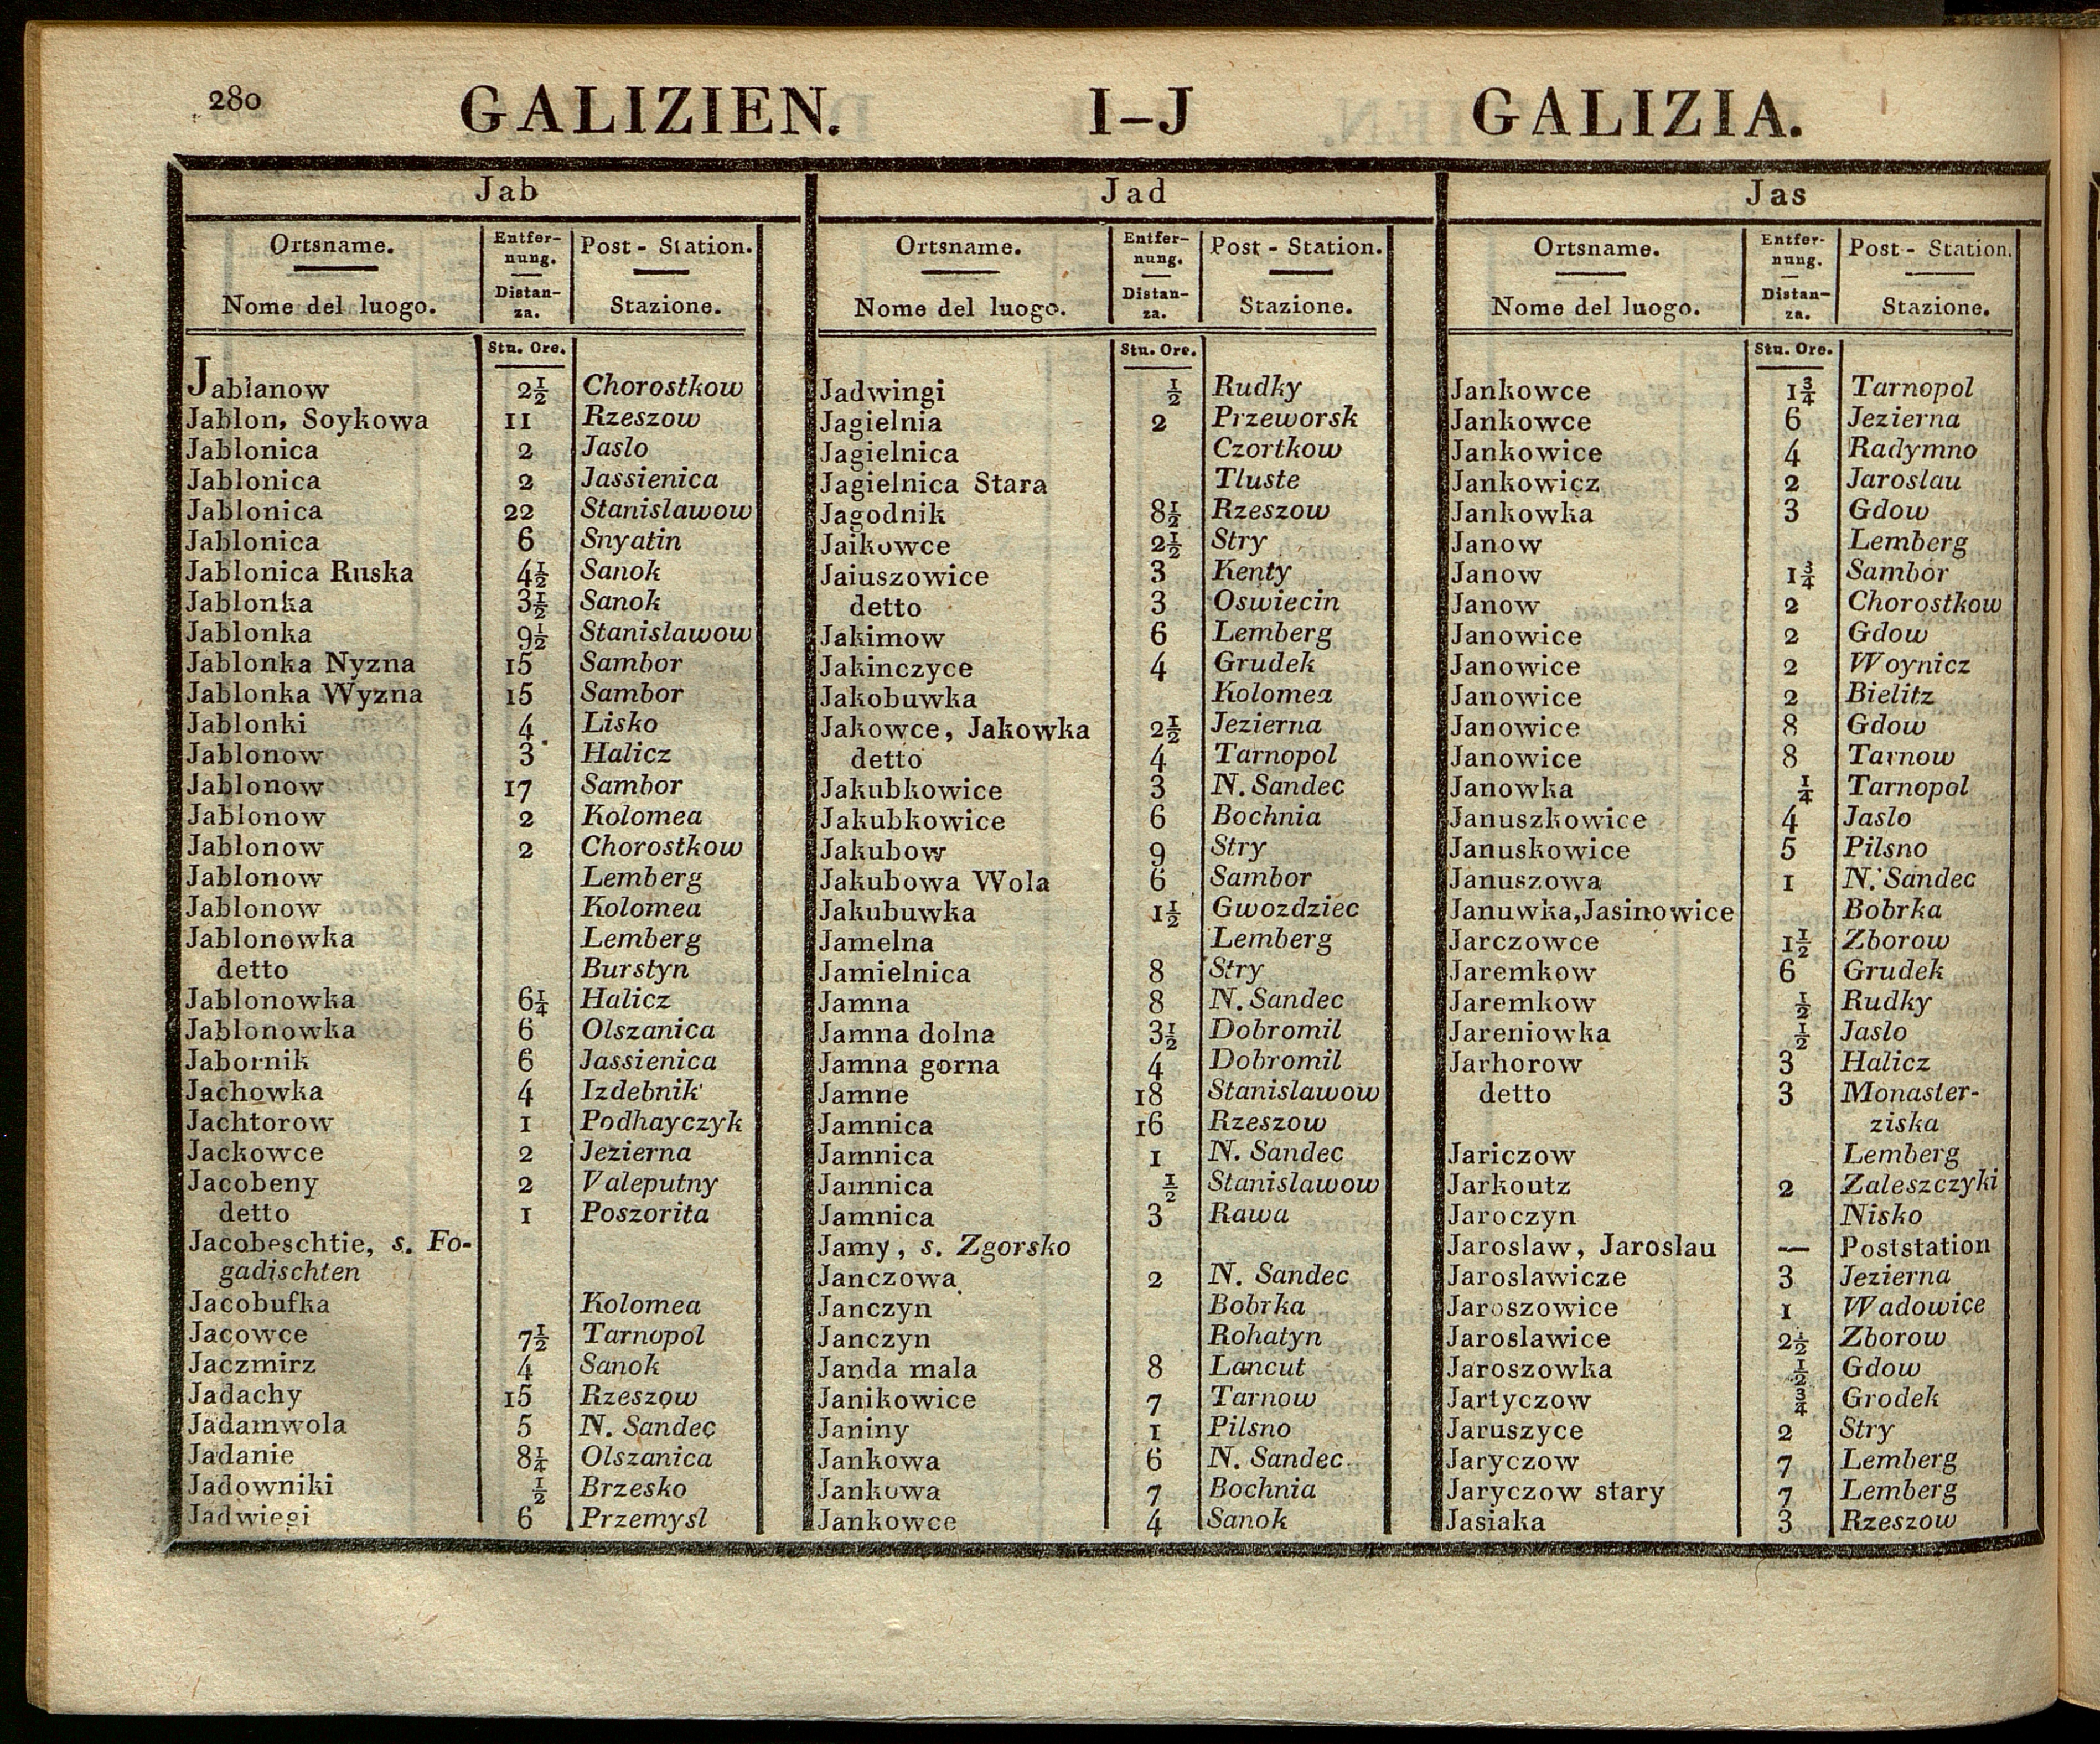 280 GALIZIEN. I–J GALIZIA.
Jab
Ortsname. Entfernung. Post-Station.
Nome del luogo. Distanza. Stazione.
Stu. Ore.
Jablanow 2½ Chorostkow
Jablon, Soykowa 11 Rzeszow
Jablonica 2 Jaslo
Jablonica 2 Jassienica
Jablonica 22 Stanislawow
Jablonica 6 Snyatin
Jablonica Ruska 4½ Sanok
Jablonka 3½ Sanok
Jablonka 9½ Stanislawow
Jablonka Nyzna 15 Sambor
Jablonka Wyzna 15 Sambor
Jablonki 4 Lisko
Jablonow 3 Halicz
Jablonow 17 Sambor
Jablonow 2 Kolomea
Jablonow 2 Chorostkow
Jablonow Lemberg
Jablonow Kolomea
Jablonowka Lemberg
detto Burstyn
Jablonowka 6¼ Halicz
Jablonowka 6 Olszanica
Jabornik 6 Jassienica
Jachowka 4 Izdebnik
Jachtorow 1 Podhayczyk
Jackowce 2 Jezierna
Jacobeny 2 Valeputny
detto 1 Poszorita
Jacobeschtie, s. Fo-
gadischten
Jacobufka Kolomea
Jacowce 7½ Tarnopol
Jaczmirz 4 Sanok
Jadachy 15 Rzeszow
Jadamwola 5 N. Sandec
Jadanie 8¼ Olszanica
Jadowniki ½ Brzesko
Jadwiegi 6 Przemysl
Jad
Ortsname. Entfernung. Post-Station.
Nome del luogo. Distanza. Stazione.
Stu. Ore.
Jadwingi ½ Rudky
Jagielnia 2 Przeworsk
Jagielnica Czortkow
Jagielnica Stara Tluste
Jagodnik 8½ Rzeszow
Jaikowce 2½ Stry
Jaiuszowice 3 Kenty
detto 3 Oswiecin
Jakimow 6 Lemberg
Jakinczyce 4 Grudek
Jakobuwka Kolomea
Jakowce, Jakowka 2½ Jezierna
detto 4 Tarnopol
Jakubkowice 3 N. Sandec
Jakubkowice 6 Bochnia
Jakubow 9 Stry
Jakubowa Wola 6 Sambor
Jakubuwka 1½ Gwozdziec
Jamelna Lemberg
Jamielnica 8 Stry
Jamna 8 N. Sandec
Jamna dolna 3½ Dobromil
Jamna gorna 4 Dobromil
Jamne 18 Stanislawow
Jamnica 16 Rzeszow
Jamnica 1 N. Sandec
Jamnica ½ Stanislawow
Jamnica 3 Rawa
Jamy, s. Zgorsko
Janczowa 2 N. Sandec
Janczyn Bobrka
Janczyn Rohatyn
Janda mala 8 Lancut
Janikowice 7 Tarnow
Janiny 1 Pilsno
Jankowa 6 N. Sandec
Jankowa 7 Bochnia
Jankowce 4 Sanok
Jas
Ortsname. Entfernung. Post-Station.
Nome del luogo. Distanza. Stazione.
Stu. Ore.
Jankowce 1¾ Tarnopol
Jankowce 6 Jezierna
Jankowice 4 Radymno
Jankowicz 2 Jaroslau
Jankowka 3 Gdow
Janow Lemberg
Janow 1¾ Sambor
Janow 2 Chorostkow
Janowice 2 Gdow
Janowice 2 Woynicz
Janowice 2 Bielitz
Janowice 8 Gdow
Janowice 8 Tarnow
Janowka ¼ Tarnopol
Januszkowice 4 Jaslo
Januskowice 5 Pilsno
Januszowa 1 N. Sandec
Januwka,Jasinowice Bobrka
Jarczowce 1½ Zborow
Jaremkow 6 Grudek
Jaremkow ½ Rudky
Jareniowka ½ Jaslo
Jarhorow 3 Halicz
detto 3 Monaster-
ziska
Jariczow Lemberg
Jarkoutz 2 Zaleszczyki
Jaroczyn Nisko
Jaroslaw, Jaroslau — Poststation
Jaroslawicze 3 Jezierna
Jaroszowice 1 Wadowice
Jaroslawice 2½ Zborow
Jaroszowka ½ Gdow
Jartyczow ¾ Grodek
Jaruszyce 2 Stry
Jaryczow 7 Lemberg
Jaryczow stary 7 Lemberg
Jasiaka 3 Rzeszow